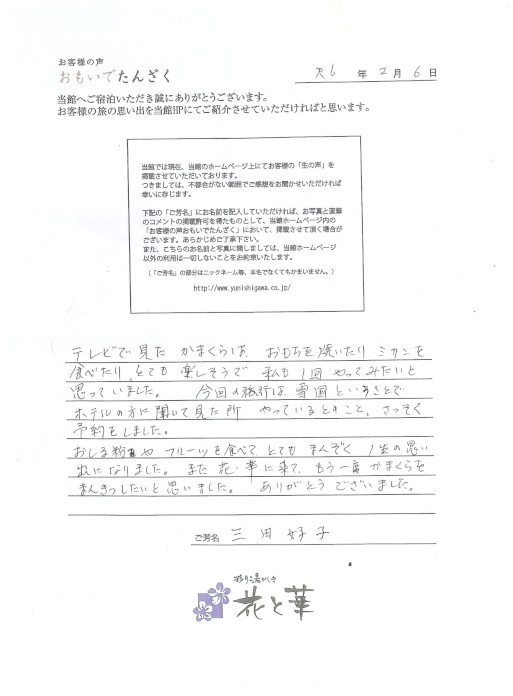 お客様の声
おもいでたんざく
R6 年 2 月 6 日
当館へご宿泊いただき誠にありがとうございます。
お客様の旅の思い出を当館HPにてご紹介させていただければと思います。
当館では現在、当館のホームページ上にてお客様の「生の声」を
掲載させていただいております。
つきましては、不都合がない範囲でご感想をお聞かせいただければ
幸いに存じます。
下記の「ご芳名」にお名前を記入していただければ、お写真と直筆
のコメントの掲載許可を得たものとして、当館ホームページ内の
「お客様の声おもいでたんざく」において、掲載させて頂く場合が
ございます。あらかじめご了承下さい。
また、こちらのお名前と写真に関しましては、当館ホームページ
以外の利用は一切しないことをお約束いたします。
（「ご芳名」の部分はニックネーム等、本名でなくてもかまいません。）
http://www.yunishigawa.co.jp/
テレビで見た かまくらは、おもちを焼いたり ミカンを
食べたり、とても 楽しそうで 私も 1回 やってみたいと
思っていました。 今回の旅行は、雪国ということで
ホテルの方に聞いて見た所 やっているとのこと、さっそく
予約をしました。
おしる粉やフルーツを食べて、とても まんぞく 1生の思い
出になりました。また 花と華に来て、もう一度 かまくらを
まんきつしたいと思いました。 ありがとう ございました。
ご芳名 三田好子
彩り湯かしき
花と華